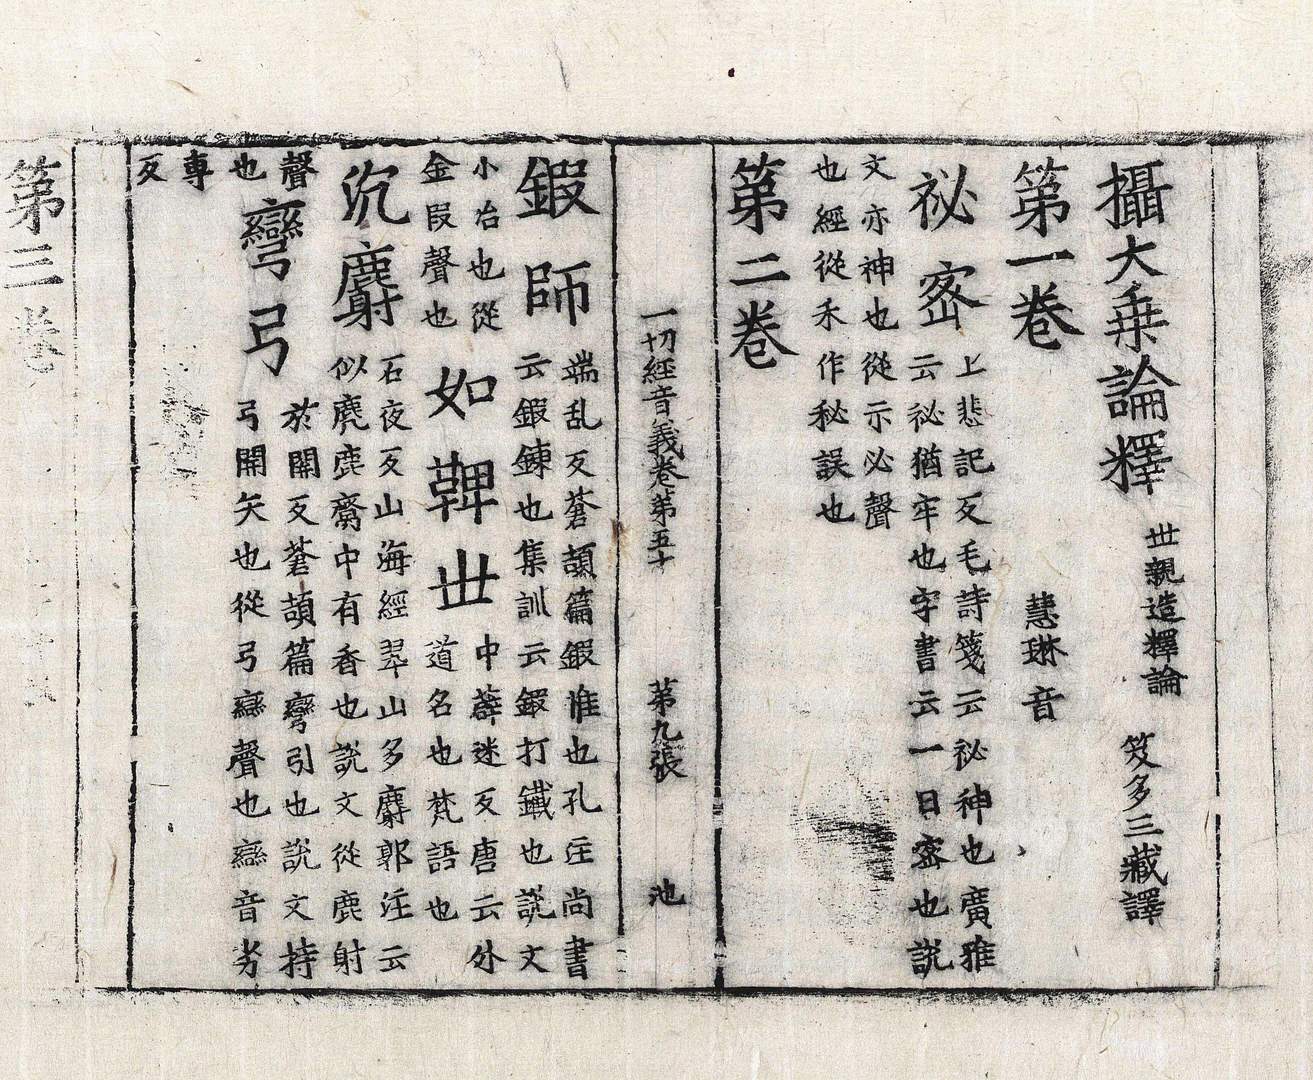 攝大乗論釋 丗親造釋論 笈多三藏譯
第一卷 慧琳音
祕宻 上悲記反毛詩箋云祕神也廣雅
云祕猶牢也字書云一日宻也說
文亦神也從示必聲
也經從禾作秘誤也
第二卷
一切經音義卷第五十 第九張 池
鍜師 端乱反蒼頡篇鍜惟也孔注尚書
云鍜鍊也集訓云鍜打鐵也說文
小冶也從
金段聲也
如鞞丗 中薜迷反唐云外
道名也梵語也
沉麝 石夜反山海經翠山多麝郭注云
似麃鹿齎中有香也說文從鹿射
聲
也
彎弓 於開反蒼頡篇彎引也說文持
弓開矢也從弓䜌聲也䜌音劣
專
反
第三卷